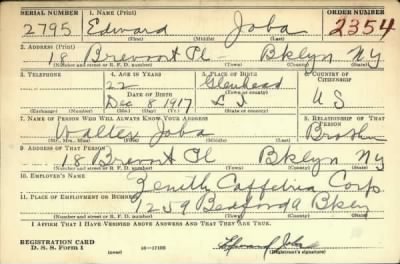 SERIAL NUMBER 1. NAME (Print) ORDER NUMBER
2795 Edward Joba 2354
(First) (Middle) (Last)
2. ADDRESS (Print)
18 Brevort Pl Bklyn NY
(Number and street or R. F. D. number) (Town) (County) (State)
3. TELEPHONE 4. AGE IN YEARS 5. PLACE OF BIRTH 6. COUNTRY OF CITIZENSHIP
22 Glenhead
DATE OF BIRTH (Town or county)
Dec 8 1917 L I US
(Exchange) (Number) (Mo.) (Day) (Yr.) (State or country)
7. NAME OF PERSON WHO WILL ALWAYS KNOW YOUR ADDRESS 8. RELATIONSHIP OF THAT PERSON
Walter Joba Brother
(Mr., Mrs., Miss) (First) (Middle) (Last)
9. ADDRESS OF THAT PERSON
18 Brevort Pl Bklyn Ny
(Number and street or R. F. D. number) (Town) (County) (State)
10. EMPLOYER'S NAME
Zenith Corp
11. PLACE OF EMPLOYMENT OR BUSINESS
1259 Bedford A Bklyn
(Number and street or R. F. D. number) (Town) (County) (State)
I AFFIRM THAT I HAVE VERIFIED ABOVE ANSWERS AND THAT THEY ARE TRUE.
REGISTRATION CARD
D. S. S. Form 1 16—17105 Edward Joba
(Registrant's signature)